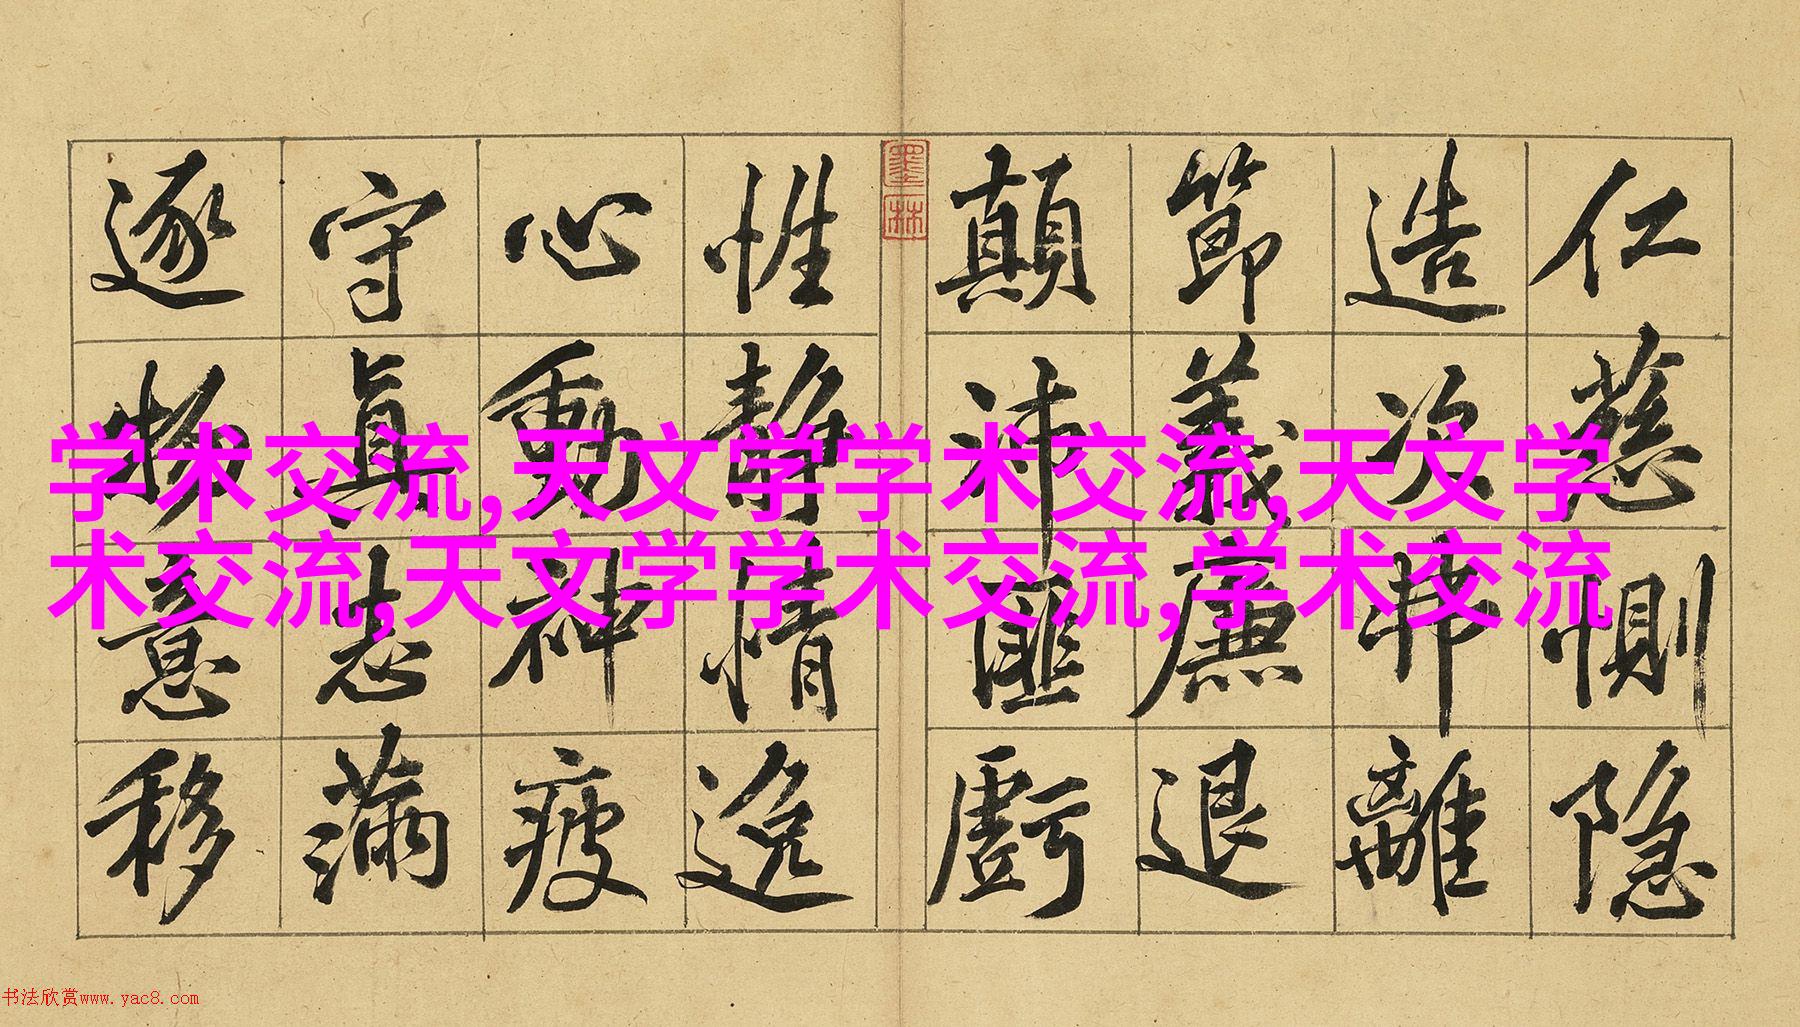 仁慈惻隐
造次弗離
節義廉退
顛沛匪虧
性静情逸
心動神疲
守真志滿
逐物意移
墨林
学术交流,天文学学术交流,天文学学
术交流,天文学学术交流,学术交流
书法欣赏www.yac8.com